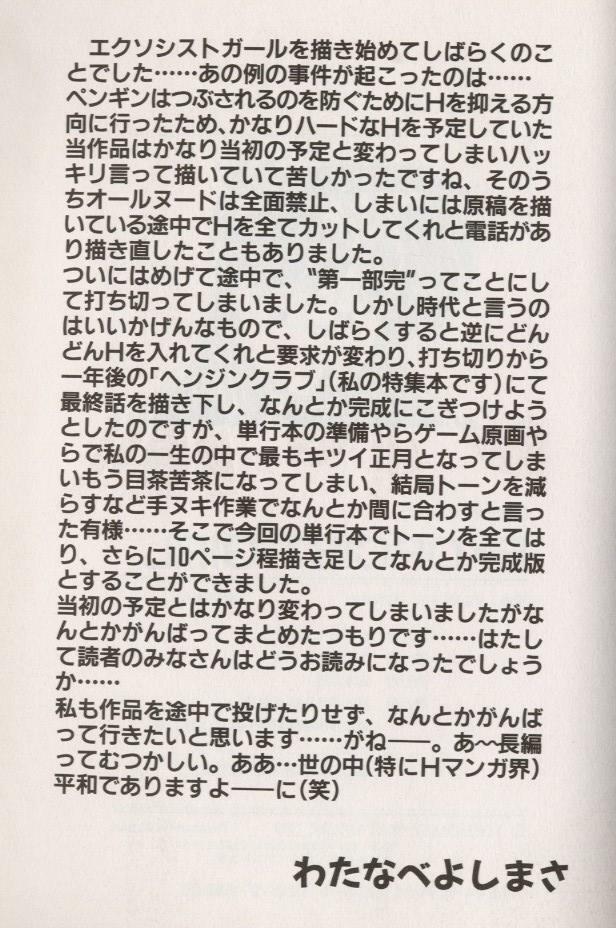 エクソシストガールを描き始めてしばらくのこ
とでした……あの例の事件が起こったのは……
ペンギンはつぶされるのを防ぐためにHを抑える方
向に行ったため、かなりハードなHを予定していた
当作品はかなり当初の予定と変わってしまいハッ
キリ言って描いていて苦しかったですね、そのう
ちオールヌードは全面禁止、しまいには原稿を描
いている途中でHを全てカットしてくれと電話があ
り描き直したこともありました。
ついにはめげて途中で、“第一部完”ってことにし
て打ち切ってしまいました。しかし時代と言うの
はいいかげんなもので、しばらくすると逆にどん
どんHを入れてくれと要求が変わり、打ち切りから
一年後の「ヘンジンクラブ」（私の特集本です）にて
最終話を描き下し、なんとか完成にこぎつけよう
としたのですが、単行本の準備やらゲーム原画や
らで私の一生の中で最もキツイ正月となってしま
いもう目茶苦茶になってしまい、結局トーンを減
らすなど手ヌキ作業でなんとか間に合わすと言っ
た有様……そこで今回の単行本でトーンを全ては
り、さらに10ページ程描き足してなんとか完成版
とすることができました。
当初の予定とはかなり変わってしまいましたがな
んとかがんばってまとめたつもりです……はたし
て読者のみなさんはどうお読みになったでしょう
か……
私も作品を途中で投げたりせず、なんとかがんば
って行きたいと思います……がね――。あ〜長編
ってむつかしい。ああ…世の中（特にHマンガ界）
平和でありますよ――に（笑）
わたなべよしまさ